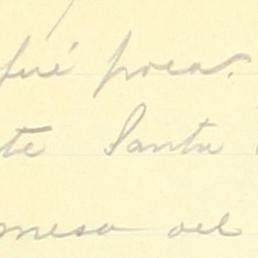 fué poca.
te Santa
mesa del